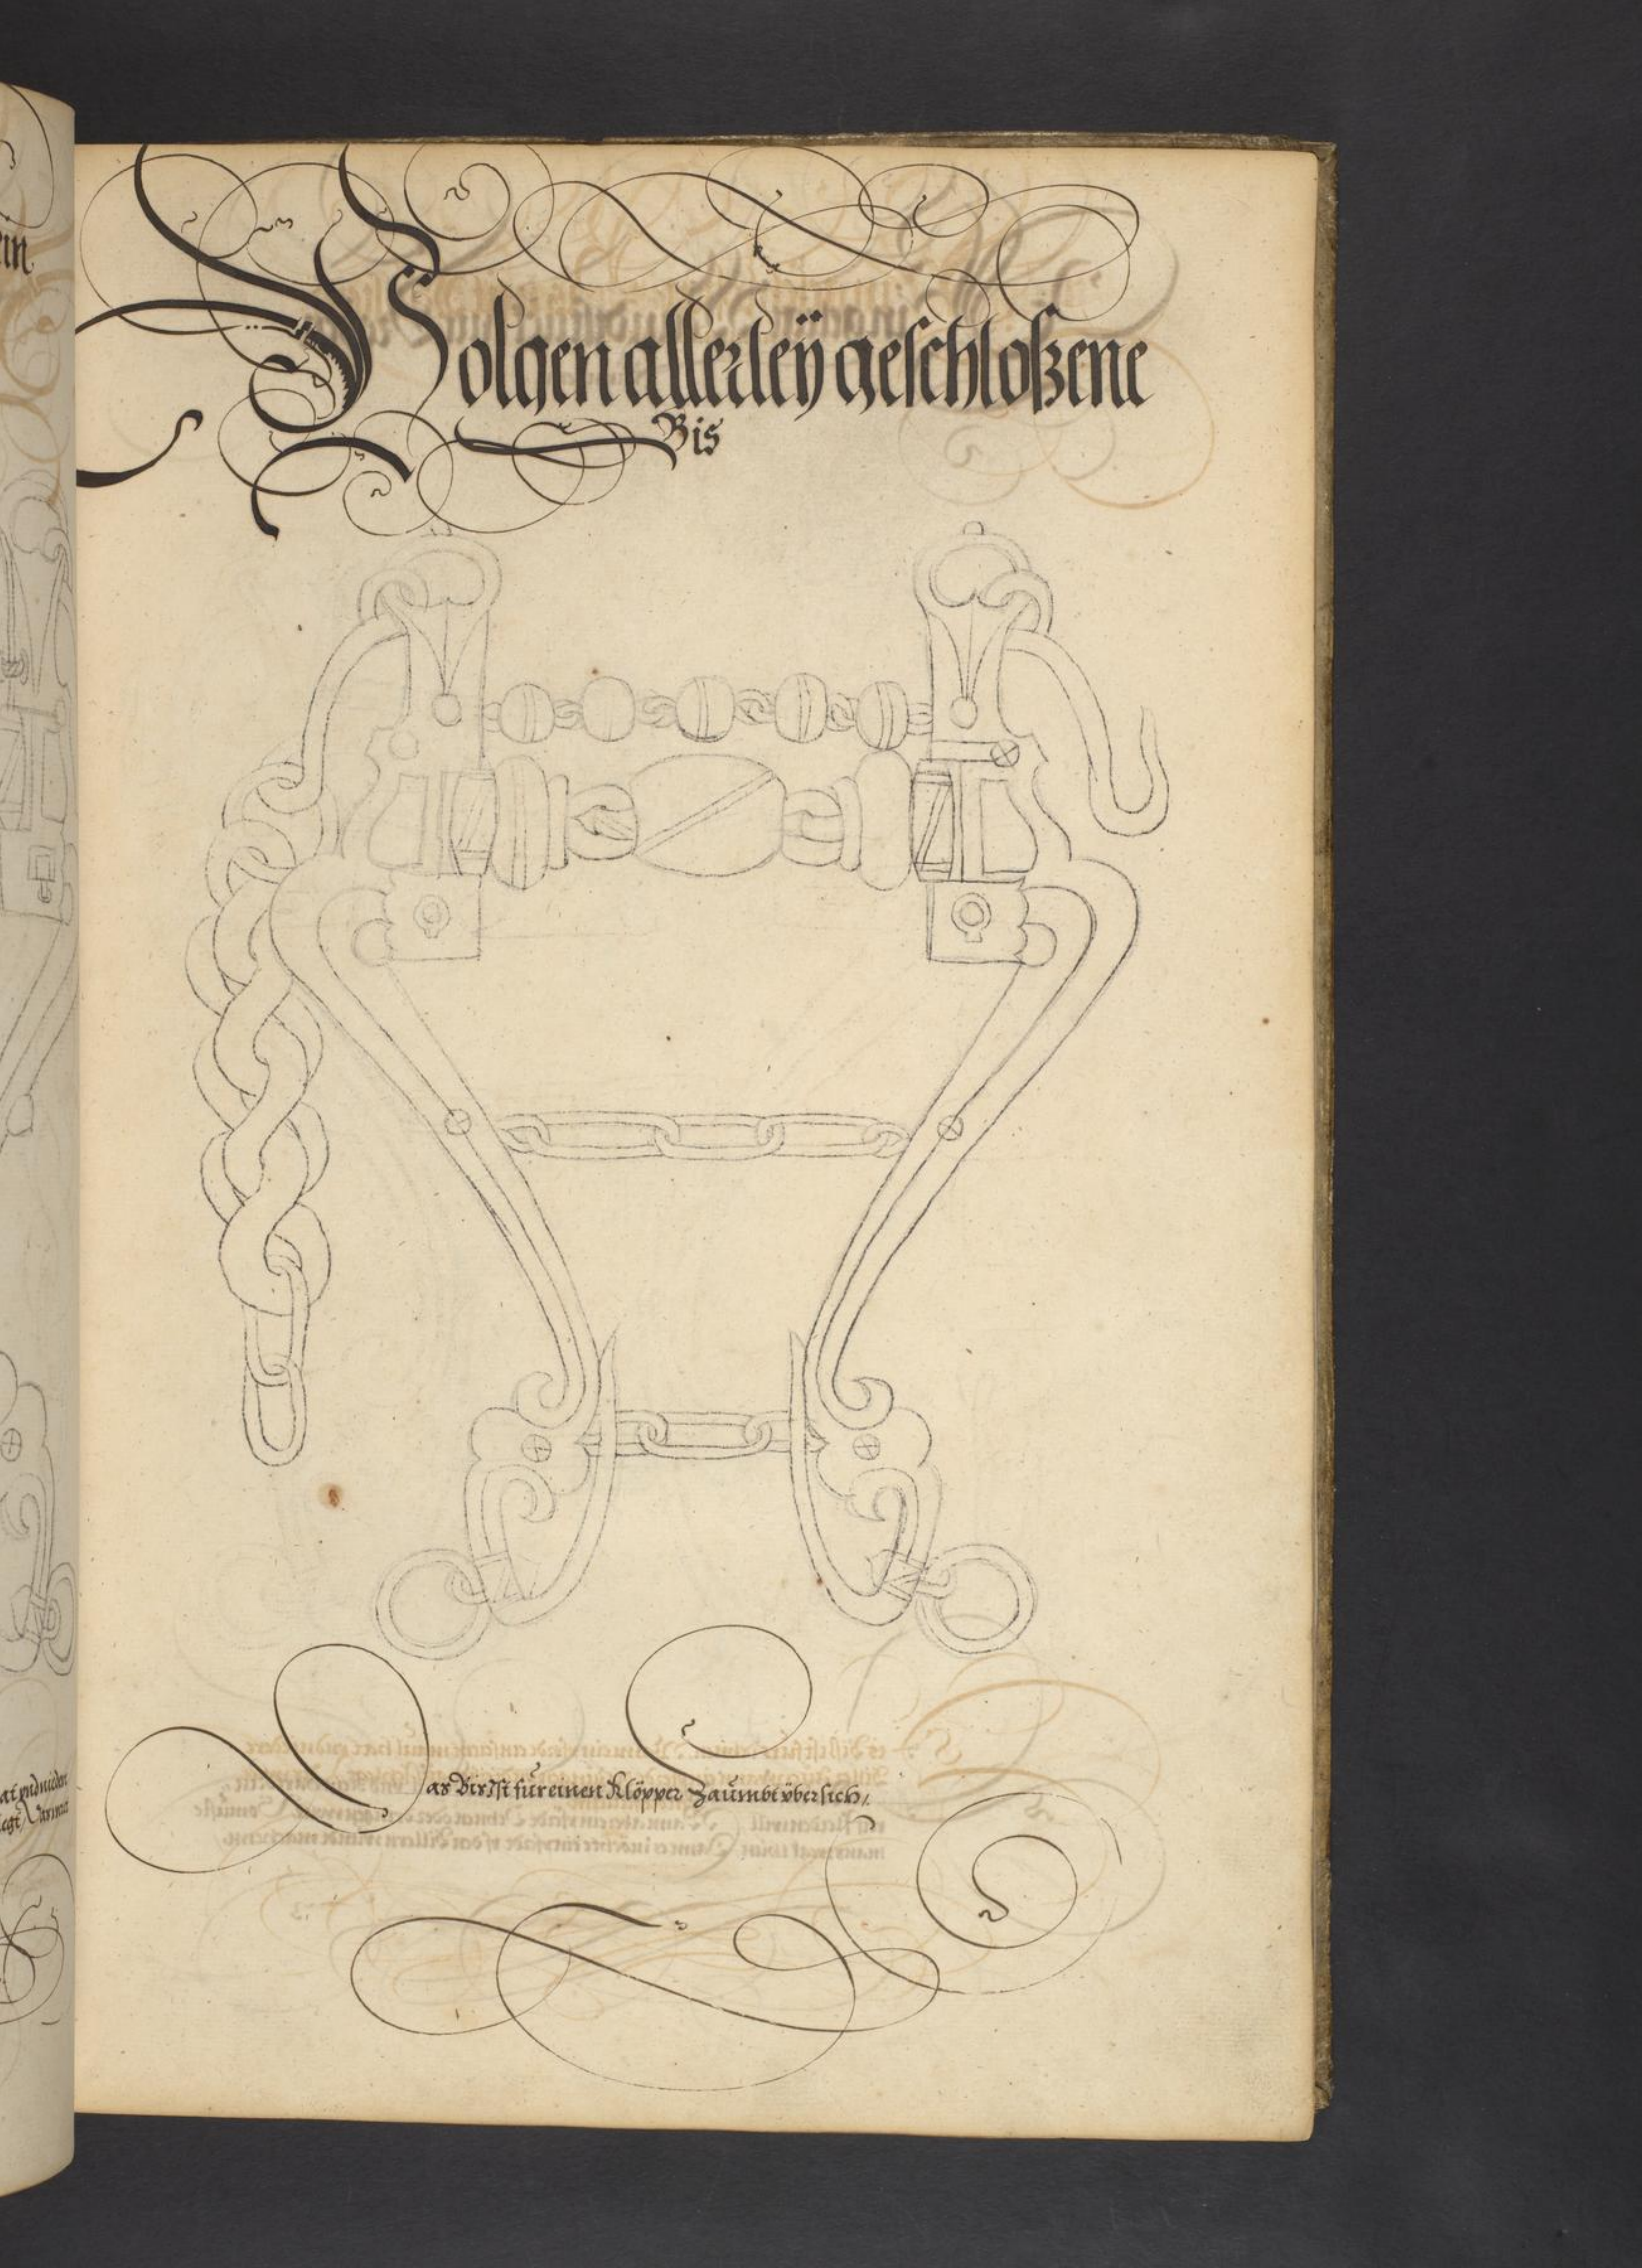 Volgen allerleÿ geschloßene
Bis
Das Bis Ist für einen Klöpper Zaümbt vber sich /.